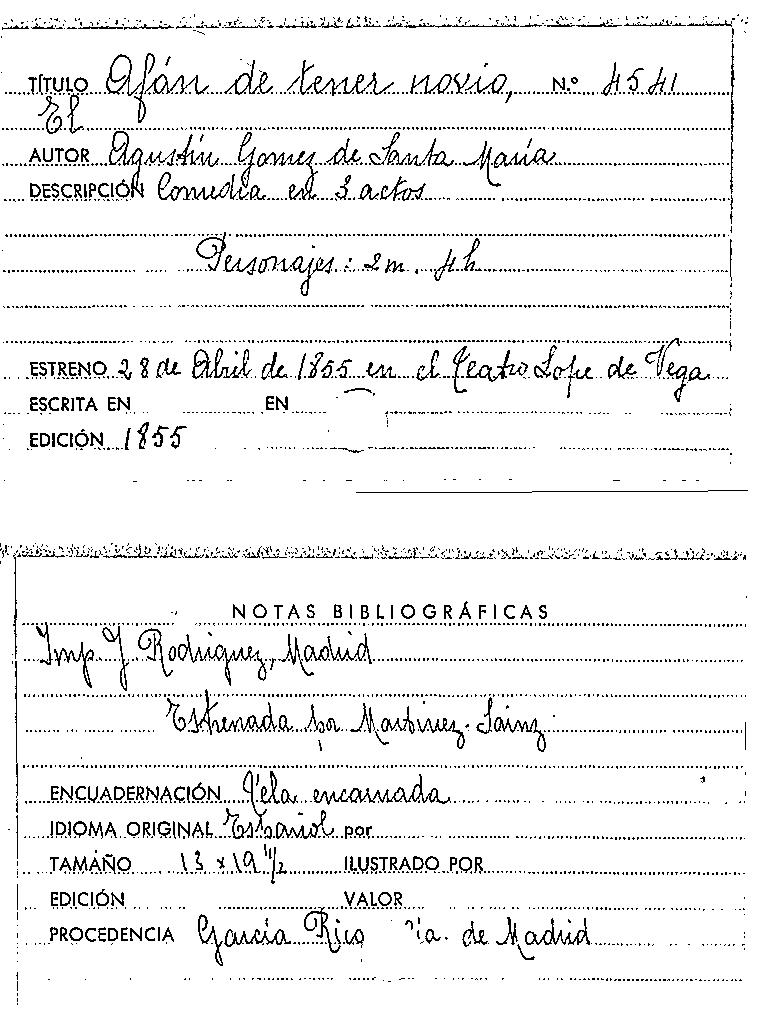 TÍTULO Afán de tener novio, N.º 4541
El
AUTOR Agustín Gomez de Santa María
DESCRIPCIÓN Comedia en 3 actos
Personajes: 2m. 4h
ESTRENO 28 de Abril de 1855 en el Teatro Lope de Vega
ESCRITA EN EN
EDICIÓN 1855
NOTAS BIBLIOGRÁFICAS
Imp J Rodriguez, Madrid
Estrenada por Martinez-Sainz
ENCUADERNACIÓN Tela encarnada
IDIOMA ORIGINAL Español por
TAMAÑO 13 x 19 1/2 ILUSTRADO POR
EDICIÓN VALOR
PROCEDENCIA García Rico de Madrid